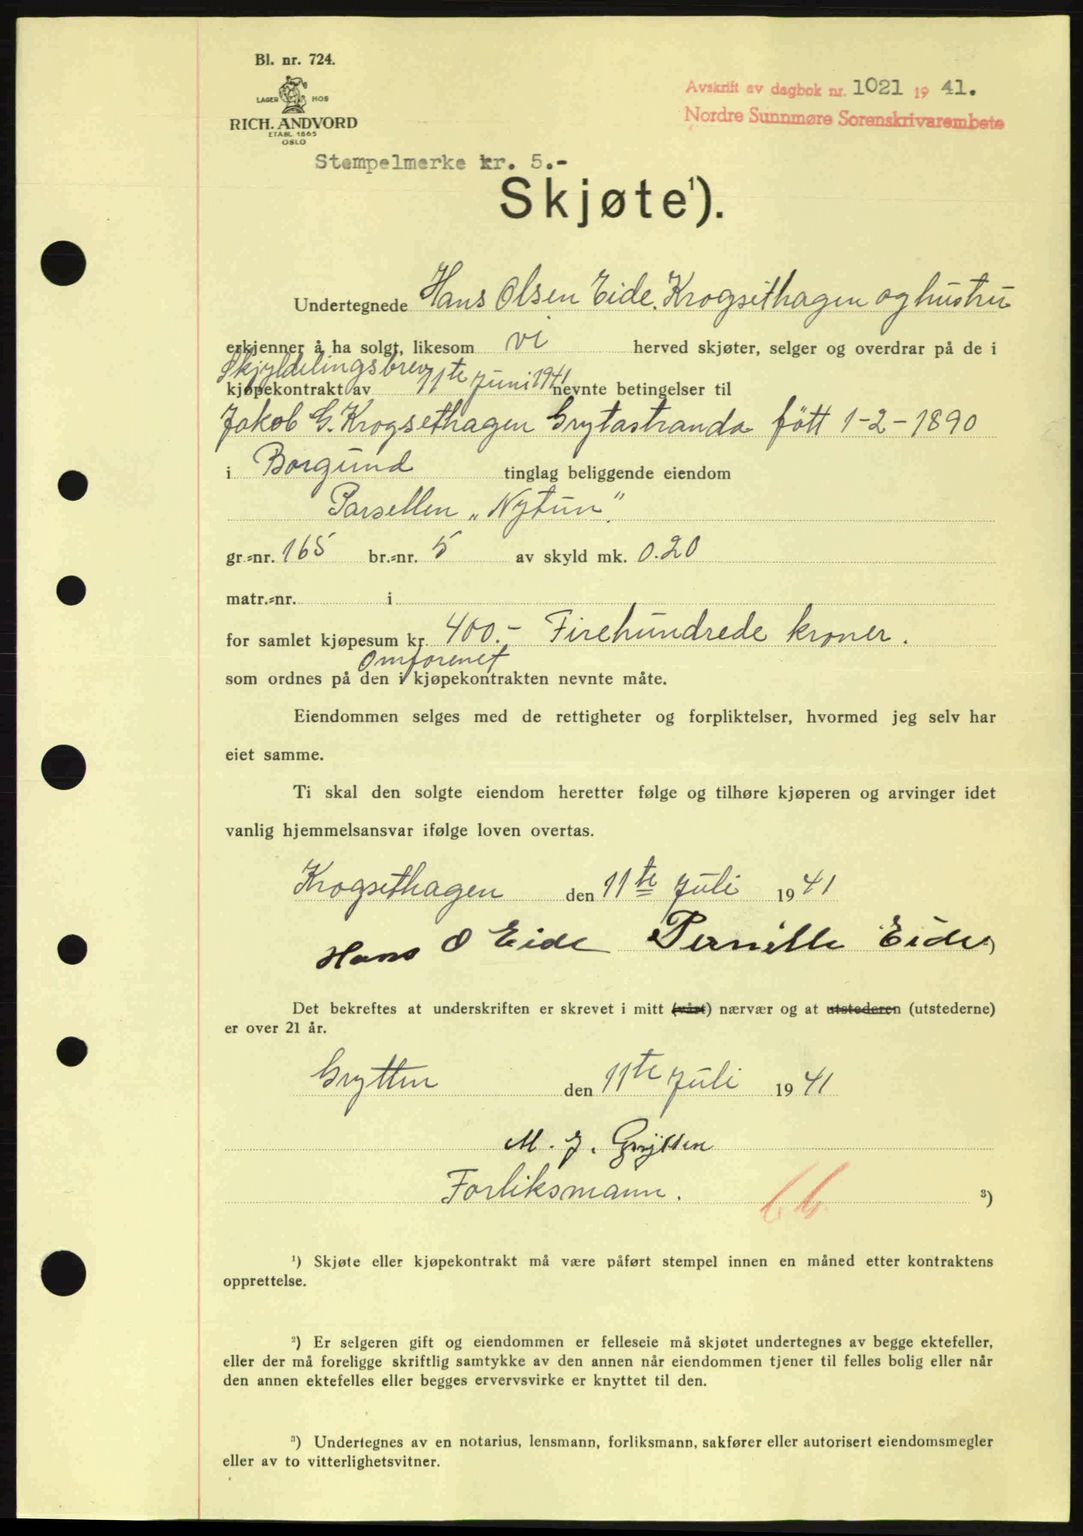 Bl. nr. 724.
LAGER HOS
RICH. ANDVORD
ETABL. 1865
OSLO
Avskrift av dagbok nr. 1021 19 41.
Nordre Sunnmøre Sorenskrivarembete
Stempelmerke kr. 5.-
Skjøte¹).
Undertegnede Hans Olsen Eide. Krogsethagen og hustru
erkjenner å ha solgt, likesom vi herved skjøter, selger og overdrar på de i
Skjyldelingsbrev
kjøpekontrakt av 11te Juni 1941 nevnte betingelser til
Jakob G. Krogsethagen Grytastranda fött 1-2-1890
i Borgund tinglag beliggende eiendom
Parsellen „Nytun".
gr.-nr. 165 br.-nr. 5 av skyld mk. 0.20
matr.-nr. i
for samlet kjøpesum kr. 400.- Firehundrede kroner.
Omforenet
som ordnes på den i kjøpekontrakten nevnte måte.
Eiendommen selges med de rettigheter og forpliktelser, hvormed jeg selv har
eiet samme.
Ti skal den solgte eiendom heretter følge og tilhøre kjøperen og arvinger idet
vanlig hjemmelsansvar ifølge loven overtas.
Krogsethagen den 11te Juli 1941
Hans O Eide Pernille Eide )
Det bekreftes at underskriften er skrevet i mitt (vårt) nærvær og at utstederen (utstederne)
er over 21 år.
Grytten den 11te Juli 1941
M. J. Grytten
Forliksmann. ³)
¹) Skjøte eller kjøpekontrakt må være påført stempel innen en måned etter kontraktens
opprettelse.
²) Er selgeren gift og eiendommen er felleseie må skjøtet undertegnes av begge ektefeller,
eller der må foreligge skriftlig samtykke av den annen når eiendommen tjener til felles bolig eller når
den annen ektefelles eller begges ervervsvirke er knyttet til den.
³) Undertegnes av en notarius, lensmann, forliksmann, sakfører eller autorisert eiendomsmegler
eller av to vitterlighetsvitner.